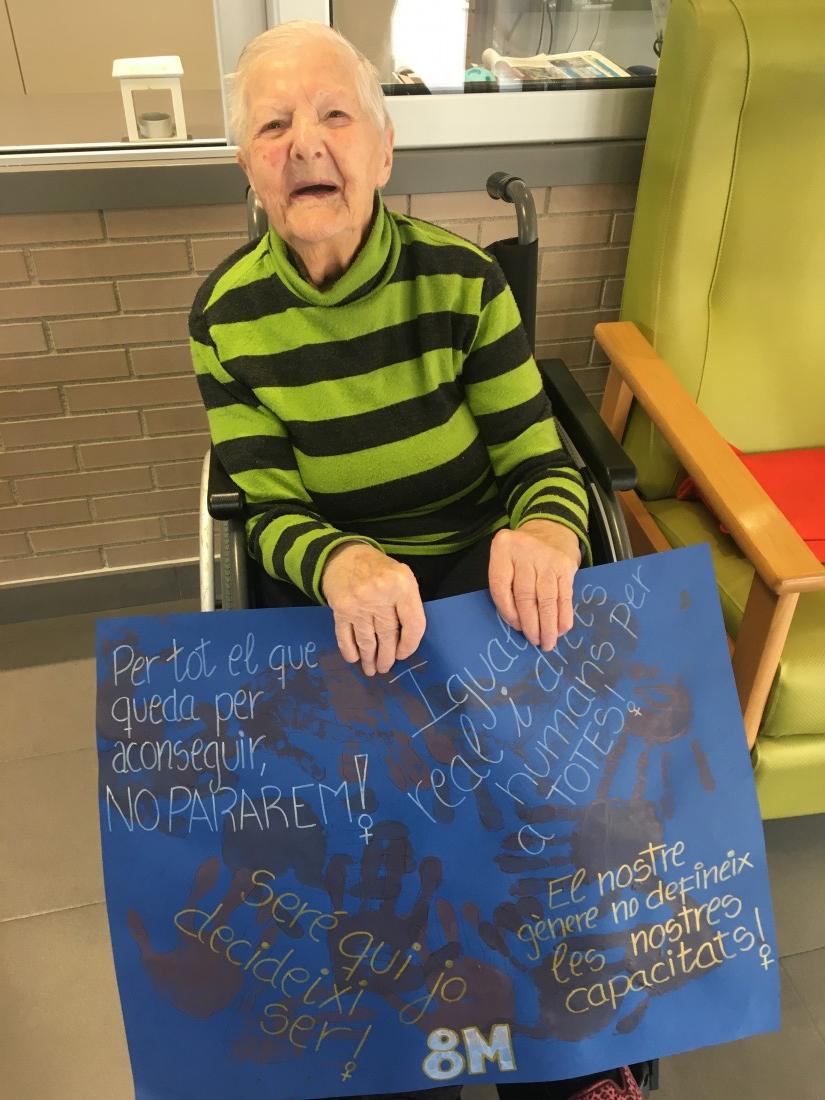 Per tot el que
queda per
aconseguir,
NO PARAREM!♀
real i drets
humans per
a TOTES!♀
Seré qui jo
decideixi
ser!♀
El nostre
gènere no defineix
les nostres
capacitats!♀
8M